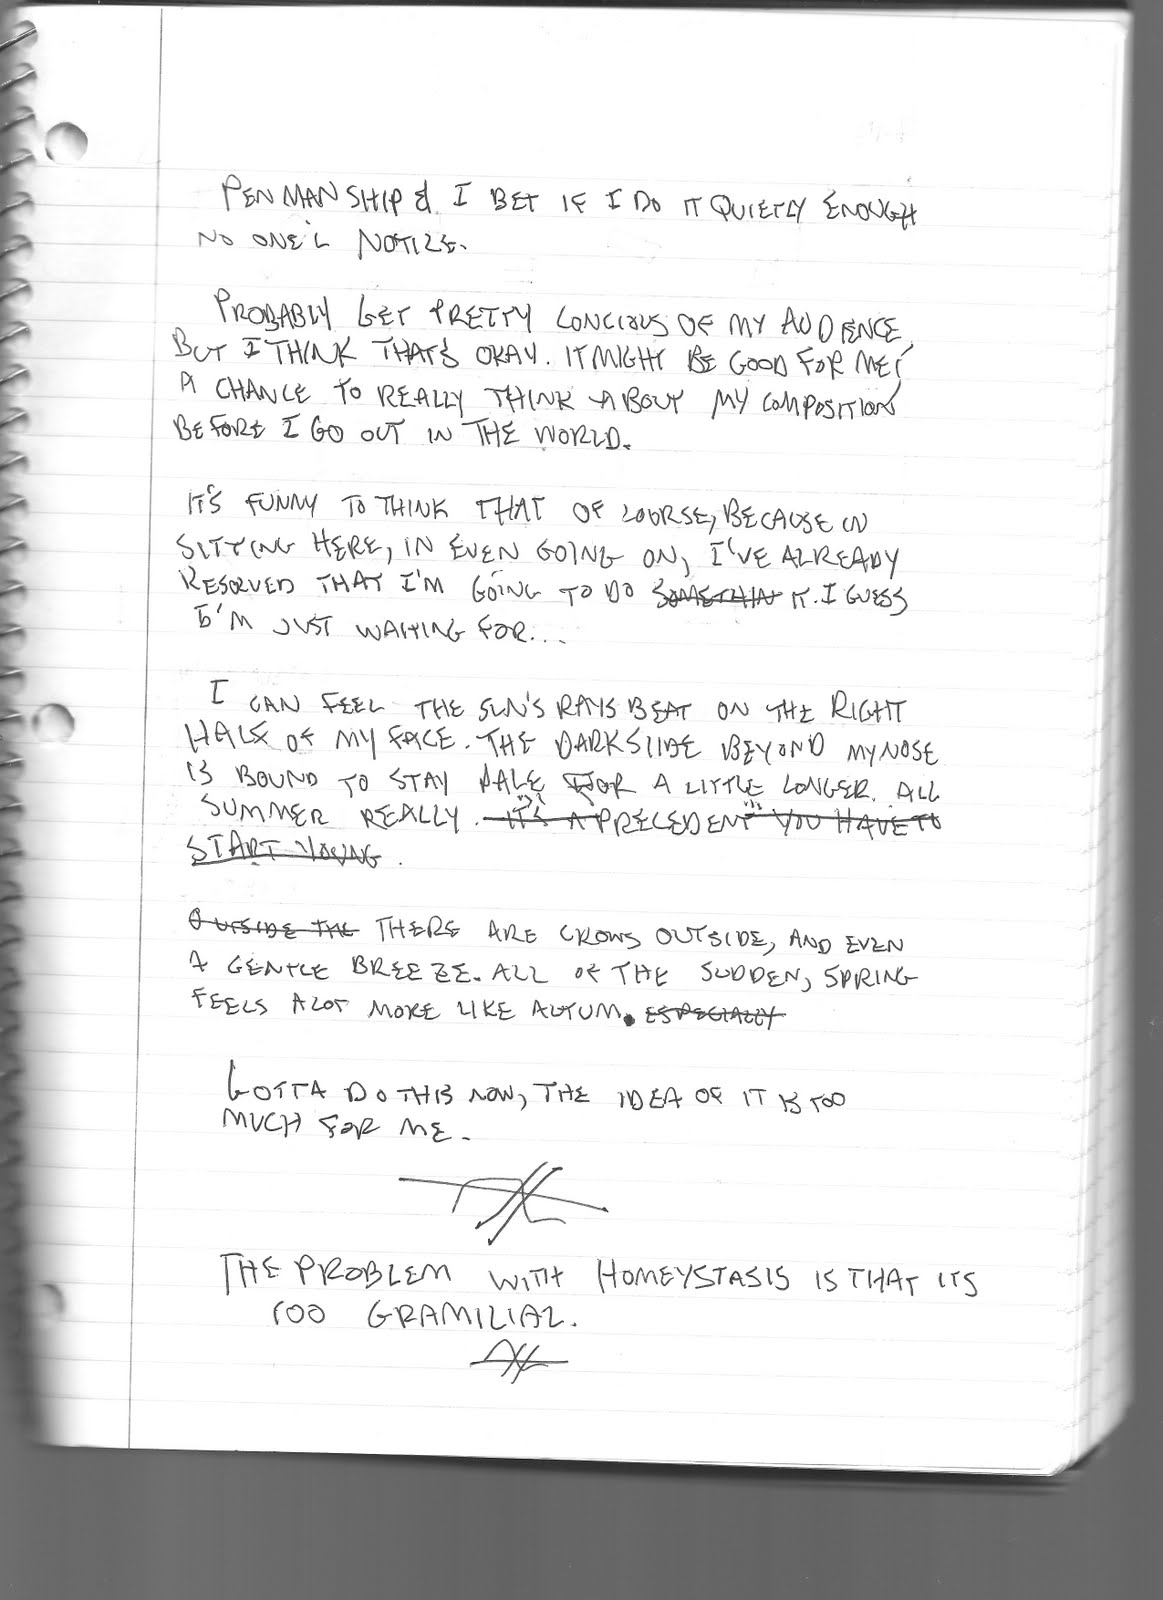 PENMANSHIP & I BET IF I DO IT QUIETLY ENOUGH
NO ONE'L NOTICE.
PROBABLY GET PRETTY CONCIOUS OF MY AUDIENCE,
BUT I THINK THAT'S OKAY. IT MIGHT BE GOOD FOR ME;
A CHANCE TO REALLY THINK ABOUT MY COMPOSITION
BEFORE I GO OUT IN THE WORLD.
IT'S FUNNY TO THINK THAT OF COURSE, BECAUSE IN
SITTING HERE, IN EVEN GOING ON, I'VE ALREADY
RESOLVED THAT I'M GOING TO DO SOMETHIN IT. I GUESS
I'M JUST WAITING FOR...
I CAN FEEL THE SUN'S RAYS BEAT ON THE RIGHT
HALF OF MY FACE. THE DARKSIIDE BEYOND MY NOSE
IS BOUND TO STAY PALE FOR A LITTLE LONGER. ALL
SUMMER REALLY. IT'S A PRECEDENT YOU HAVE TO
START YOUNG.
OUTSIDE THE THERE ARE CROWS OUTSIDE, AND EVEN
A GENTLE BREEZE. ALL OF THE SUDDEN, SPRING
FEELS A LOT MORE LIKE AUTUM. ESPECIALLY
GOTTA DO THIS NOW, THE IDEA OF IT IS TOO
MUCH FOR ME.
THE PROBLEM WITH HOMEYSTASIS IS THAT ITS
TOO GRAMILIAL.